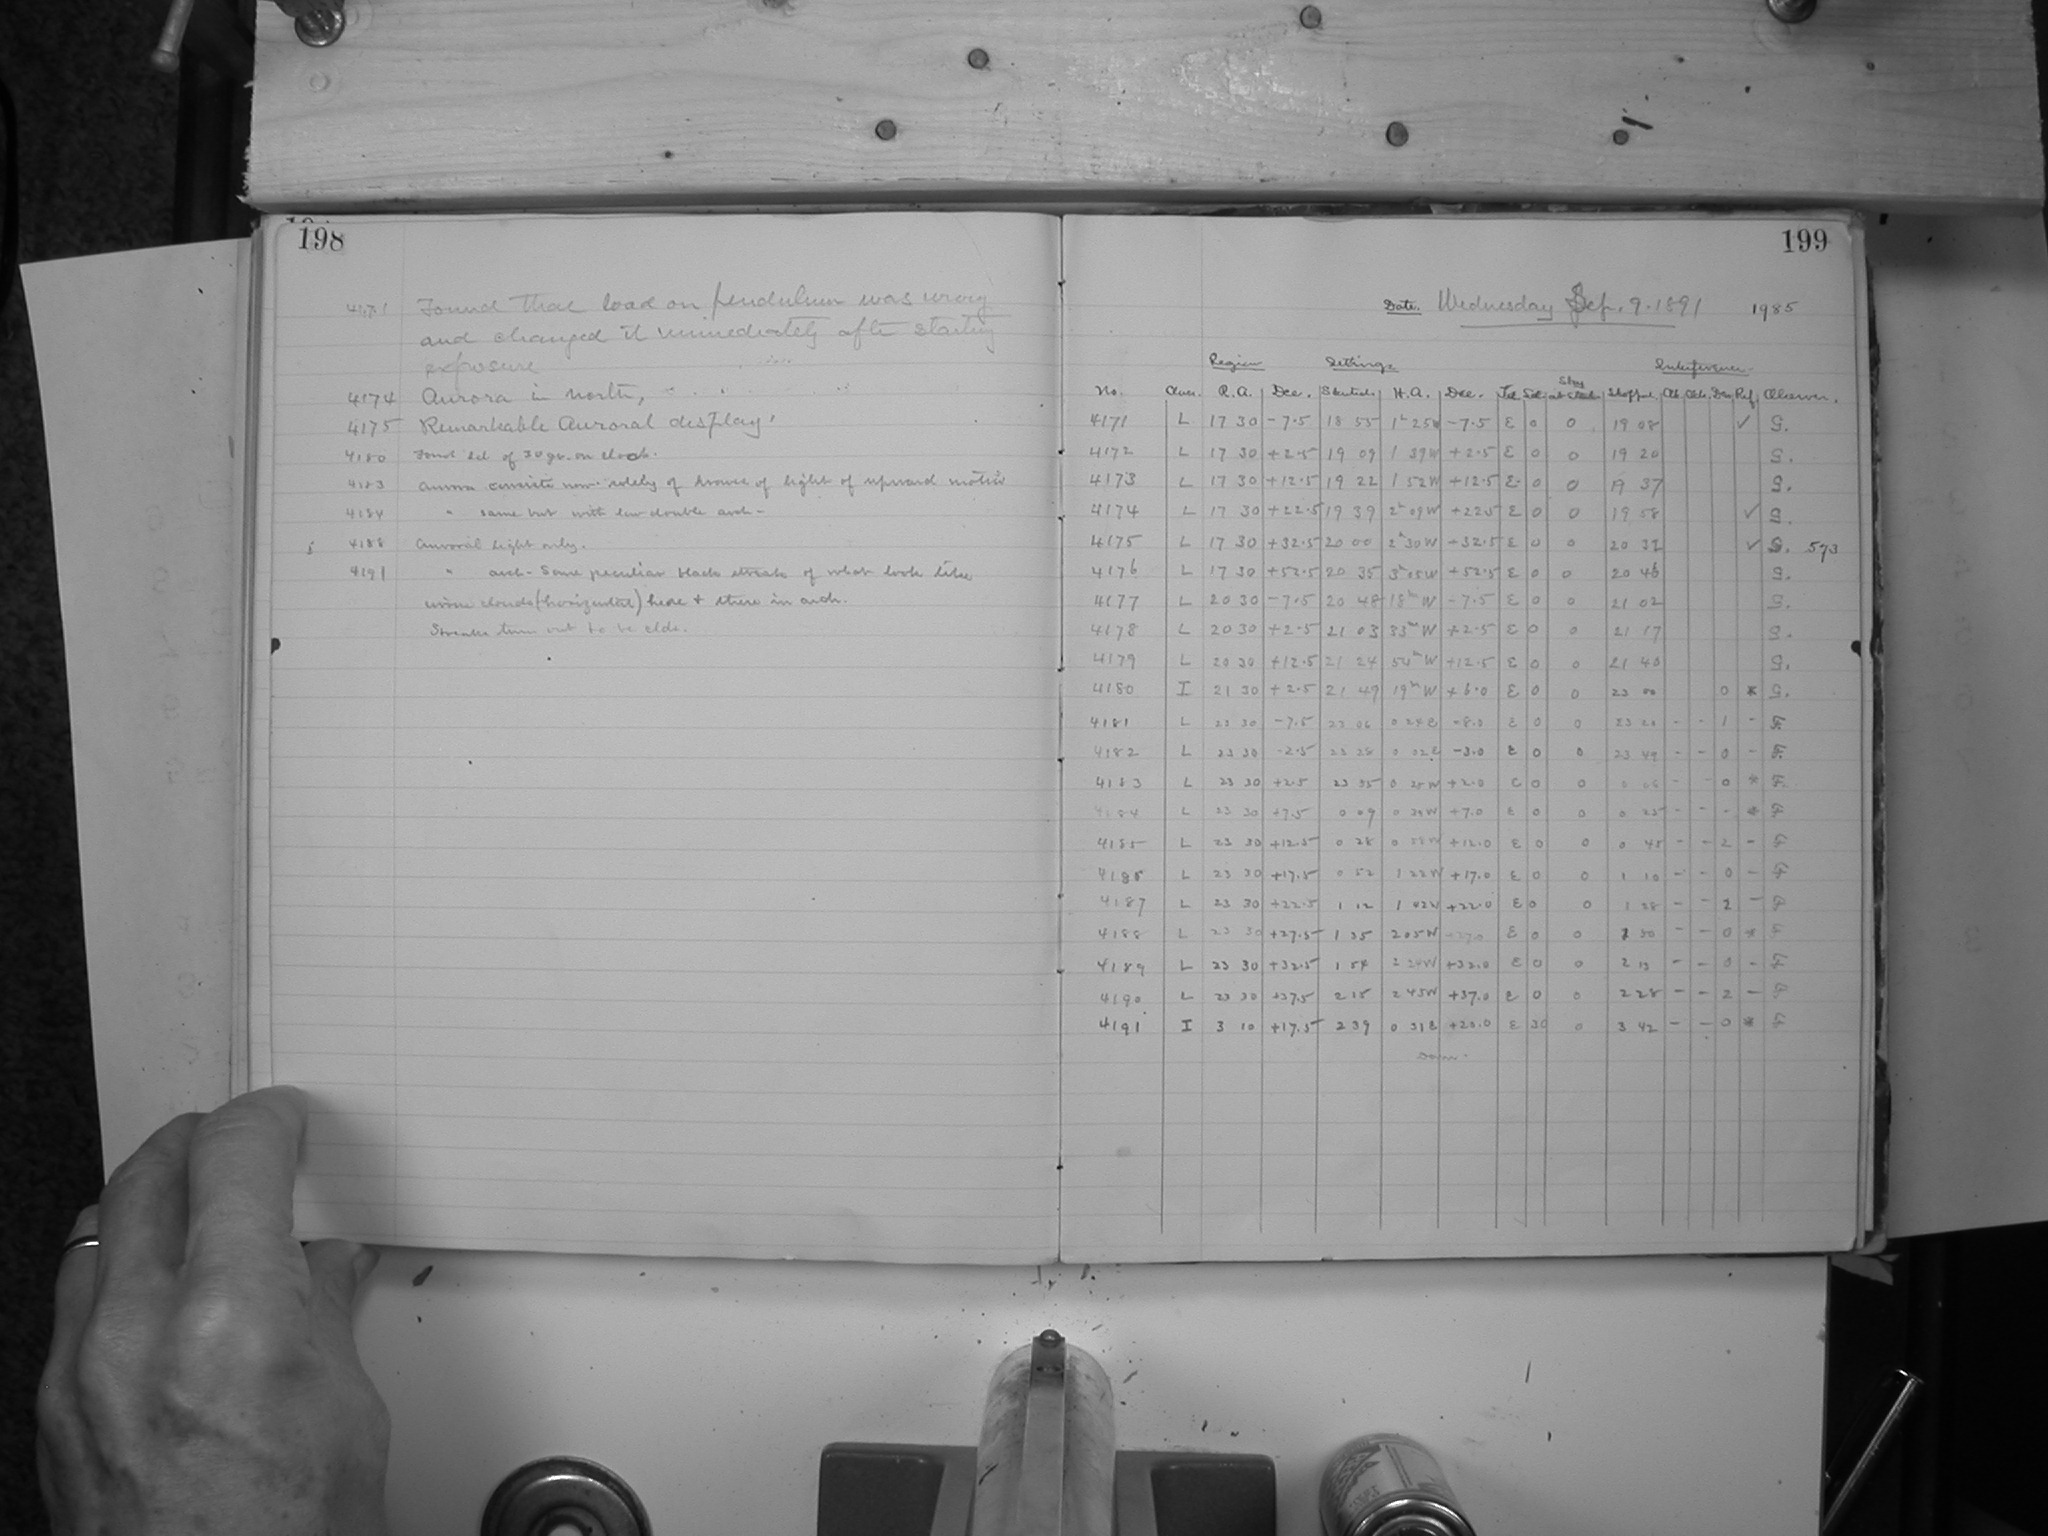 198
4171 Found that load on pendulum was wrong
and changed it immediately after starting
exposure
4174 Aurora in north,
4175 Remarkable Auroral display
4180 Found of 30 gr. on clock.
4183 Aurora consists now of of light of upward motion
4184 " same but with low double arch -
4188 Auroral light only.
4191 " arch - Some peculiar black streaks of what look like
clouds (horizontal) here + there in arch.
Streaks turn out to be clds.
199
Date. Wednesday Sep. 9. 1891 1985
Region Settings Interference
No. Class. R.A. Dec. Started H.A. Dec. Tel Sid. Stopped. Dew Ref. Observer.
4171 L 17 30 -7.5 18 55 1h 25W -7.5 E 0 0 19 08 ✓ G.
4172 L 17 30 +2.5 19 09 1 39W +2.5 E 0 0 19 20 G.
4173 L 17 30 +12.5 19 22 1 52W +12.5 E 0 0 19 37 G.
4174 L 17 30 +22.5 19 39 2h 09W +22.5 E 0 0 19 58 ✓ G.
4175 L 17 30 +32.5 20 00 2h 30W +32.5 E 0 0 20 32 ✓ G. 573
4176 L 17 30 +52.5 20 35 3h 05W +52.5 E 0 0 20 46 G.
4177 L 20 30 -7.5 20 48 18m W -7.5 E 0 0 21 02 G.
4178 L 20 30 +2.5 21 03 33m W +2.5 E 0 0 21 17 G.
4179 L 20 30 +12.5 21 24 54m W +12.5 E 0 0 21 40 G.
4180 I 21 30 +2.5 21 49 19m W +6.0 E 0 0 23 00 0 * G.
4181 L 23 30 -7.5 23 06 0 24E -8.0 E 0 0 23 20 - - 1 - F.
4182 L 23 30 -2.5 23 28 0 02E -3.0 E 0 0 23 49 - - 0 - F.
4183 L 23 30 +2.5 23 55 0 25W +2.0 E 0 0 0 06 - - 0 * F.
4184 L 23 30 +7.5 0 09 0 39W +7.0 E 0 0 0 25 - - - * F
4185 L 23 30 +12.5 0 28 0 58W +12.0 E 0 0 0 45 - - 2 - F
4186 L 23 30 +17.5 0 52 1 22W +17.0 E 0 0 1 10 - - 0 - F
4187 L 23 30 +22.5 1 12 1 42W +22.0 E 0 0 1 28 - - 2 - F
4188 L 23 30 +27.5 1 35 2 05W +27.0 E 0 0 1 50 - - 0 * F
4189 L 23 30 +32.5 1 54 2 24W +32.0 E 0 0 2 13 - - 0 - F
4190 L 23 30 +37.5 2 15 2 45W +37.0 E 0 0 2 28 - - 2 - F
4191 I 3 10 +17.5 2 39 0 31E +20.0 E 30 0 3 42 - - 0 * F
Dawn.